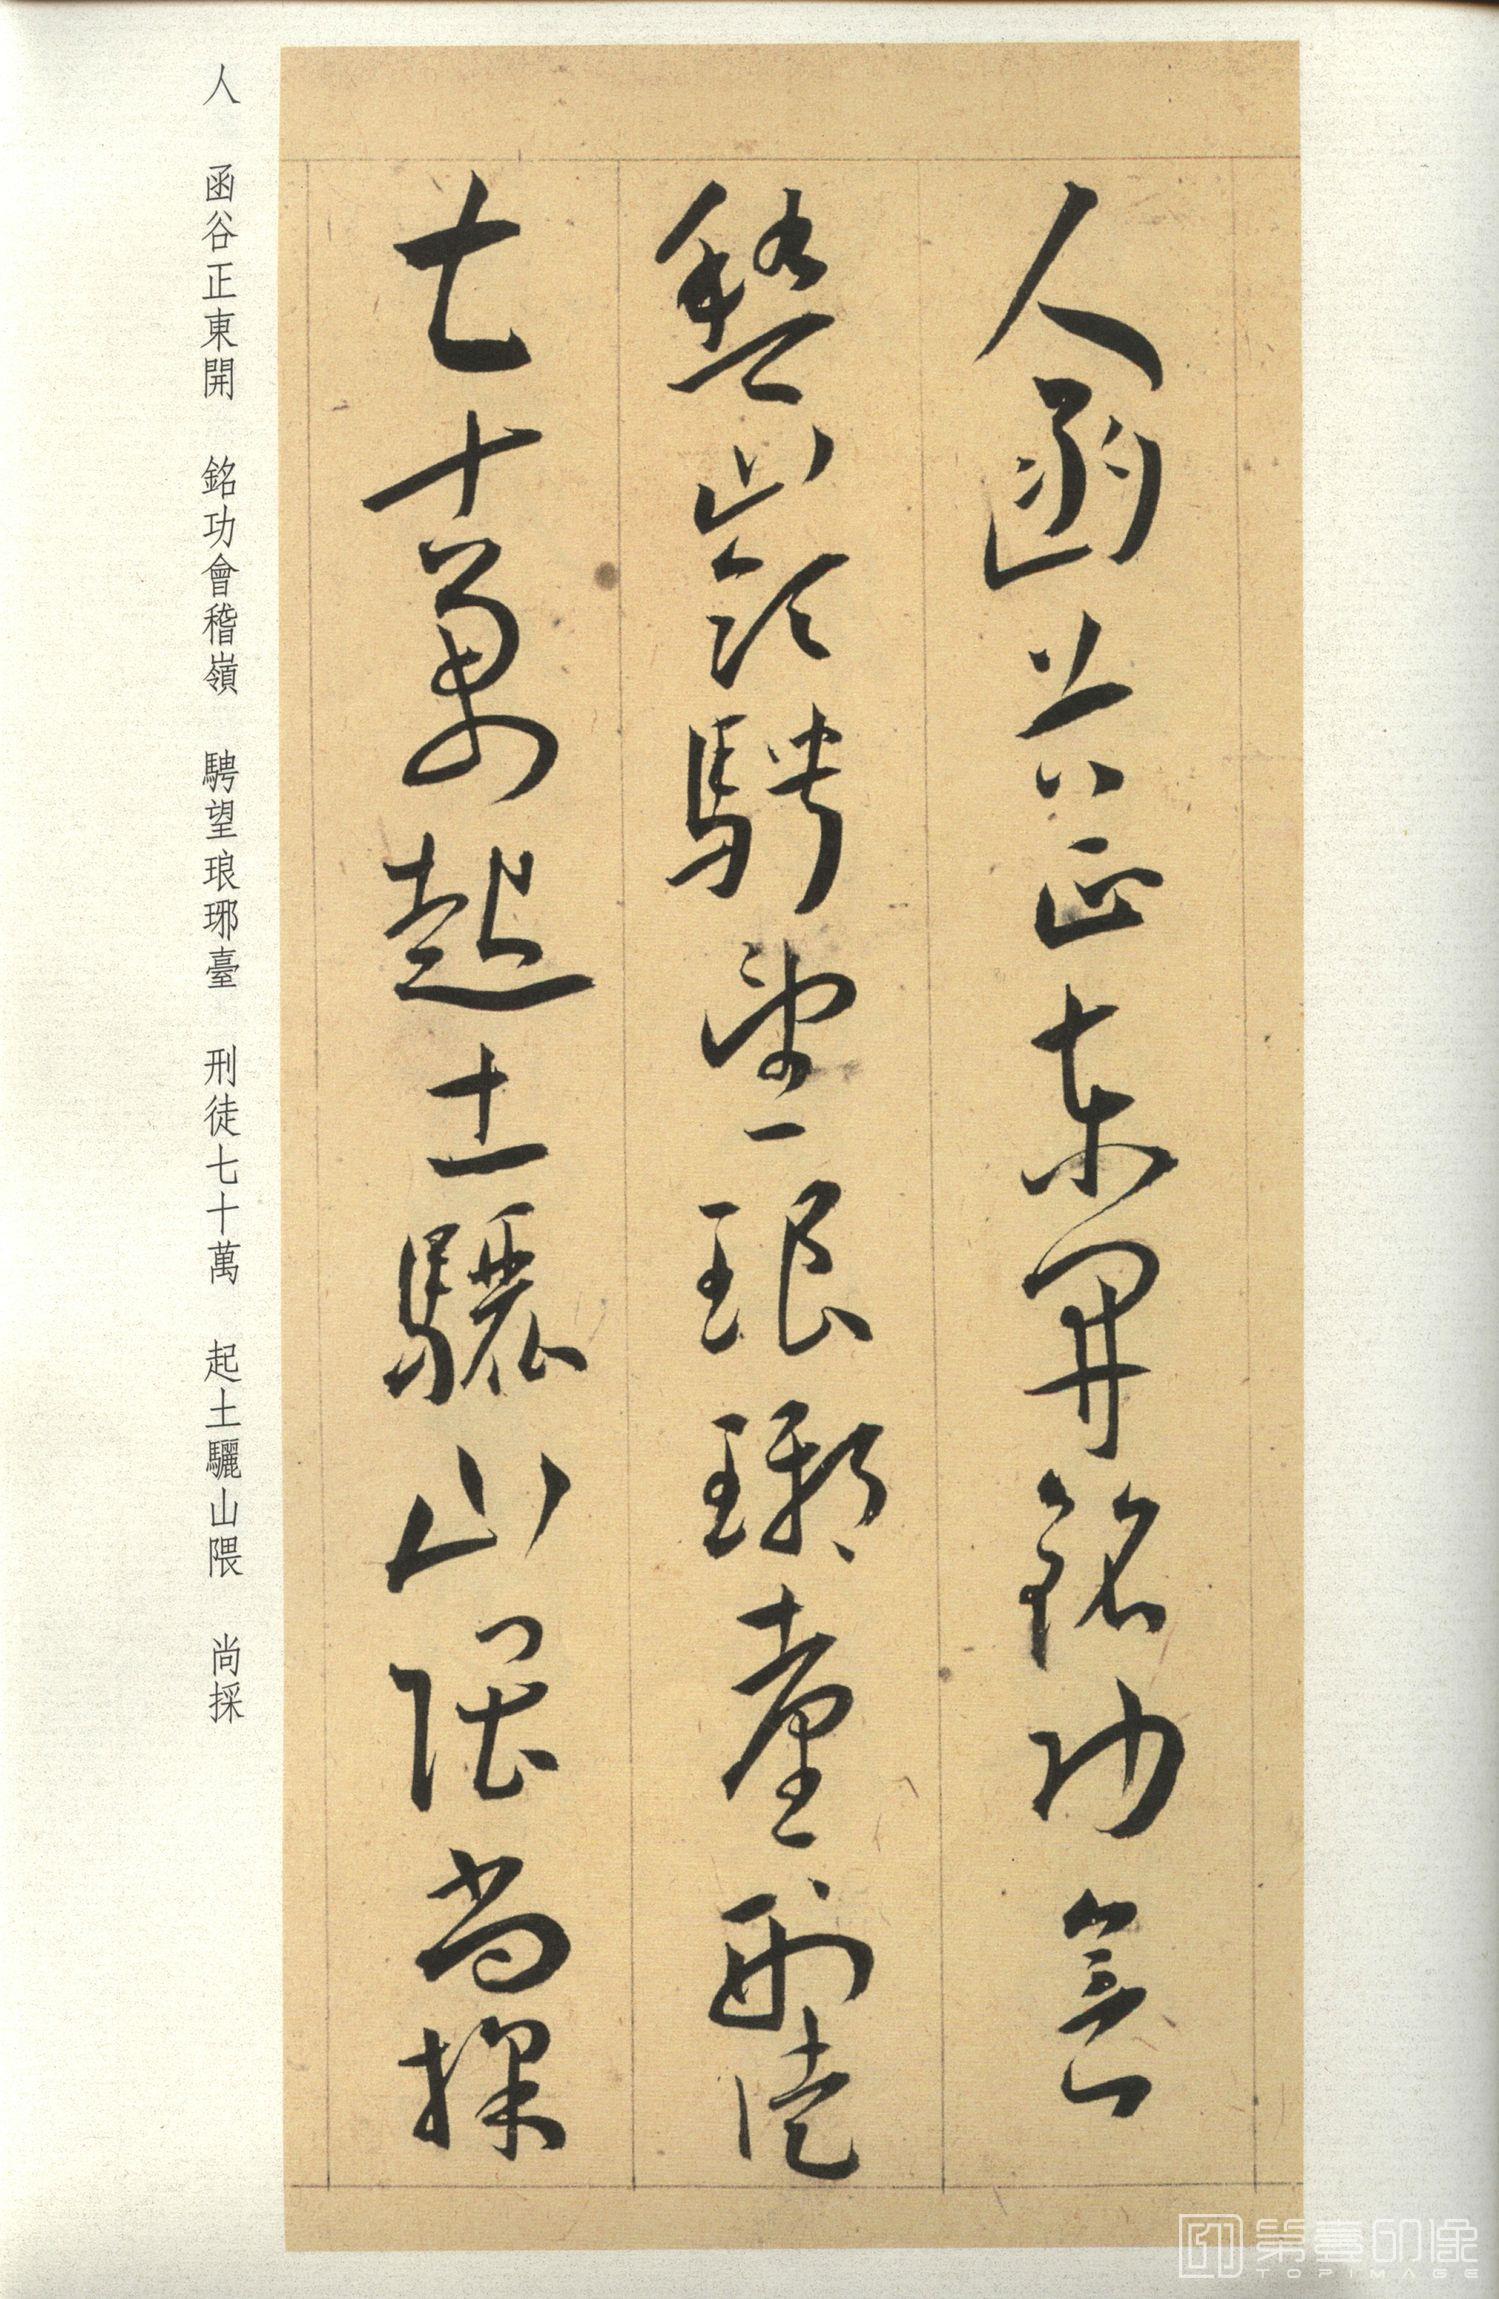 人函谷正東開銘功會
稽嶺騁望琅琊臺刑徒
七十萬起土驪山隈尚採
人 函谷正東開 銘功會稽嶺 騁望琅琊臺 刑徒七十萬 起土驪山隈 尚採
第壹印像
TOPIMAGE